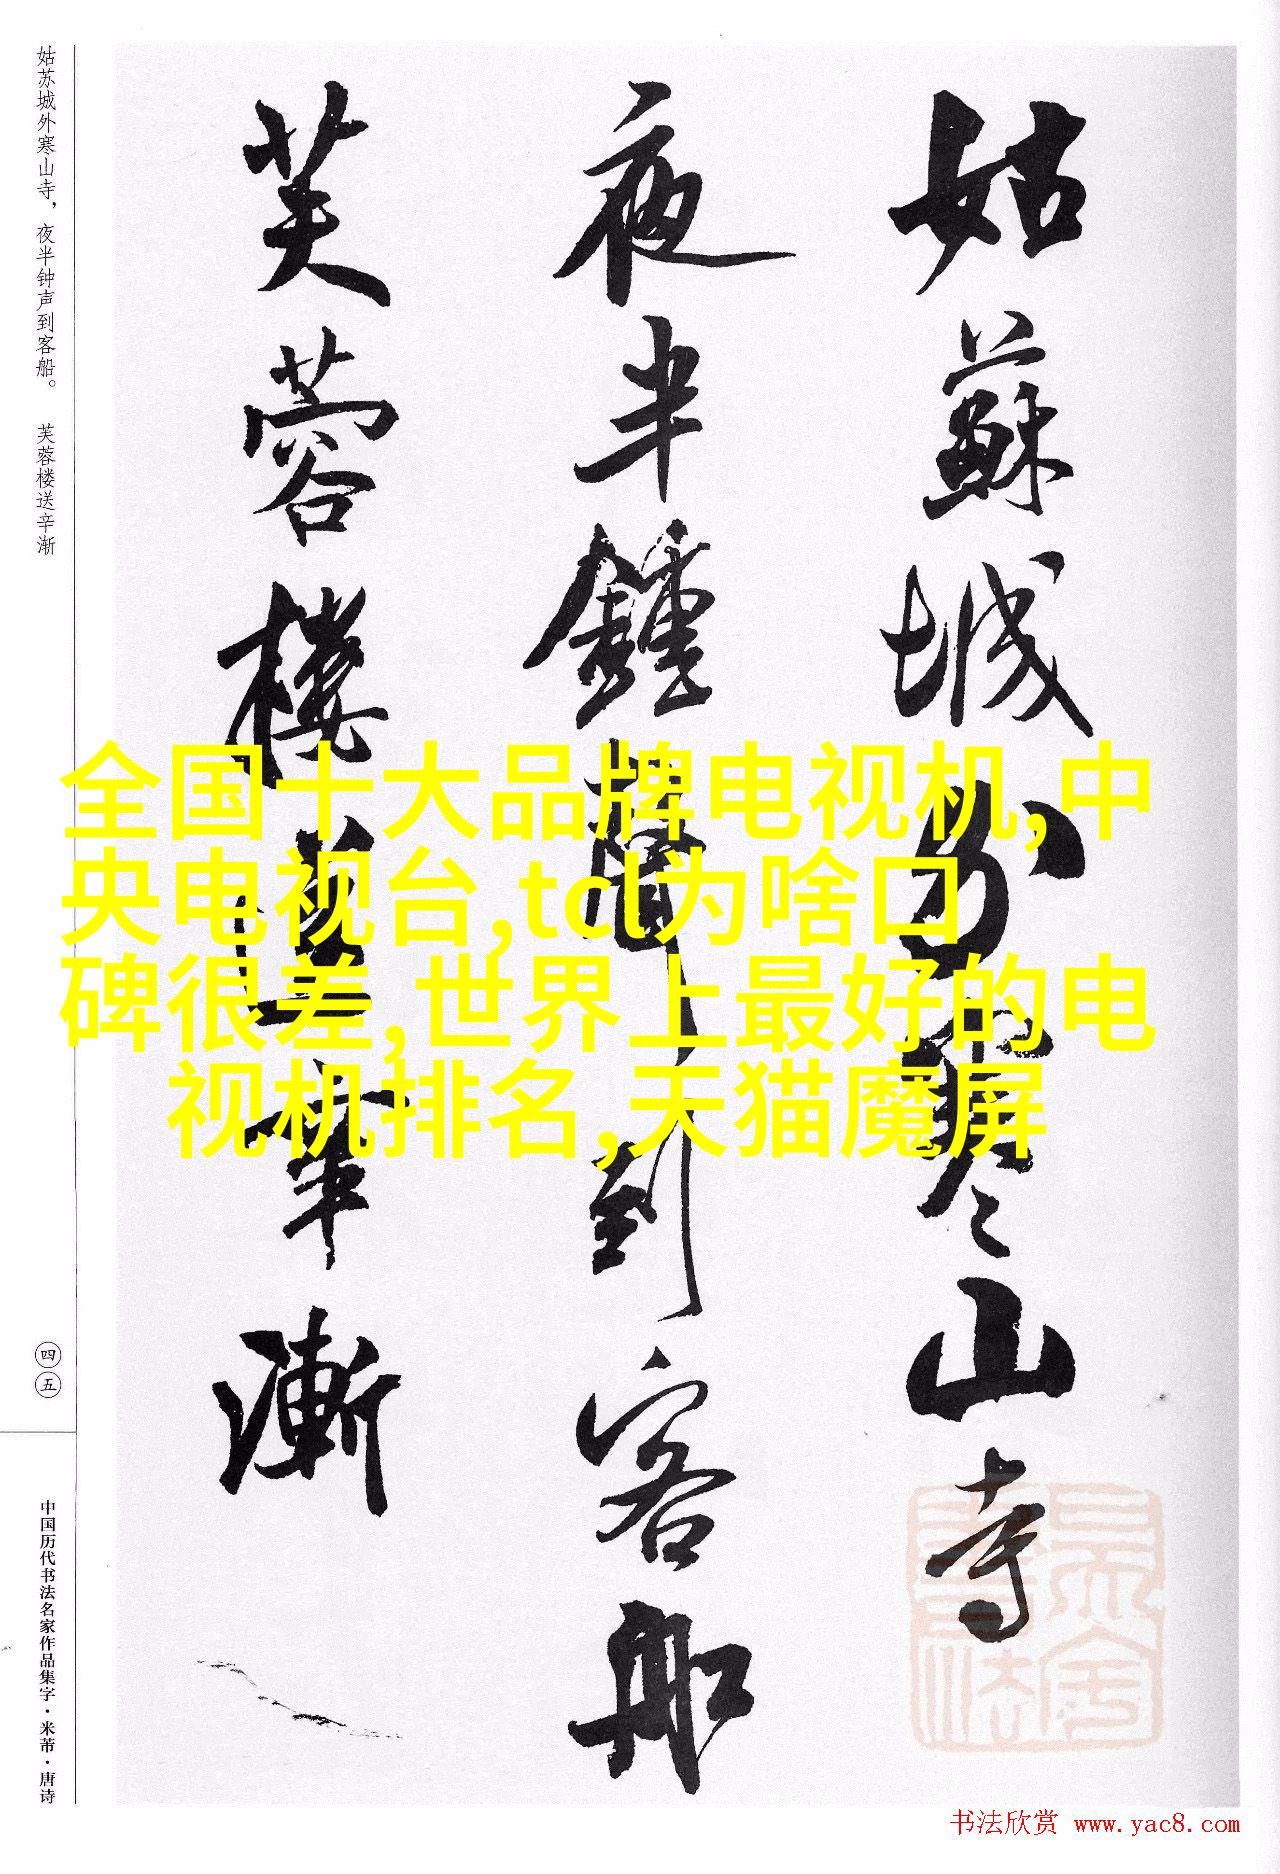 姑蘇城外寒山寺
夜半鍾聲到客船
芙蓉樓送辛漸
姑苏城外寒山寺，夜半钟声到客船。 芙蓉楼送辛渐
四五
中国历代书法名家作品集字·米芾·唐诗
全国十大品牌电视机,中
央电视台,tcl为啥口
碑很差,世界上最好的电
视机排名,天猫魔屏
书法欣赏 www.yac8.com